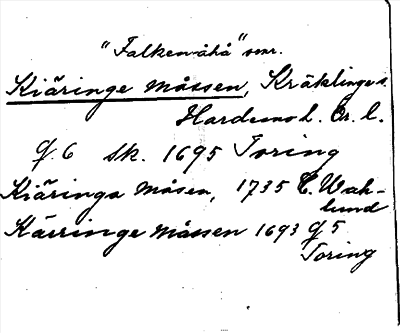 "Falken-åhå" omr.
Kiäringe måssen, Kräklinge s.
Hardemo h. Ör. l.
g. 6 sk. 1695 Toring
Kiäringa måsen, 1735 C. Wah-
lund
Käriinge måssen 1693 g 5
Toring